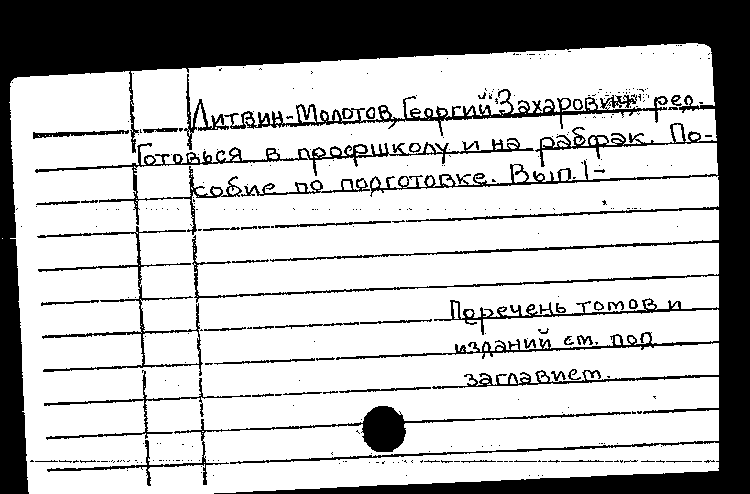 Литвин-Молотов, Георгий Захарович, ред.
Готовься в профшколу и на рабфак. По-
собие по подготовке. Вып. 1-
Перечень томов и
изданий см. под
заглавием.